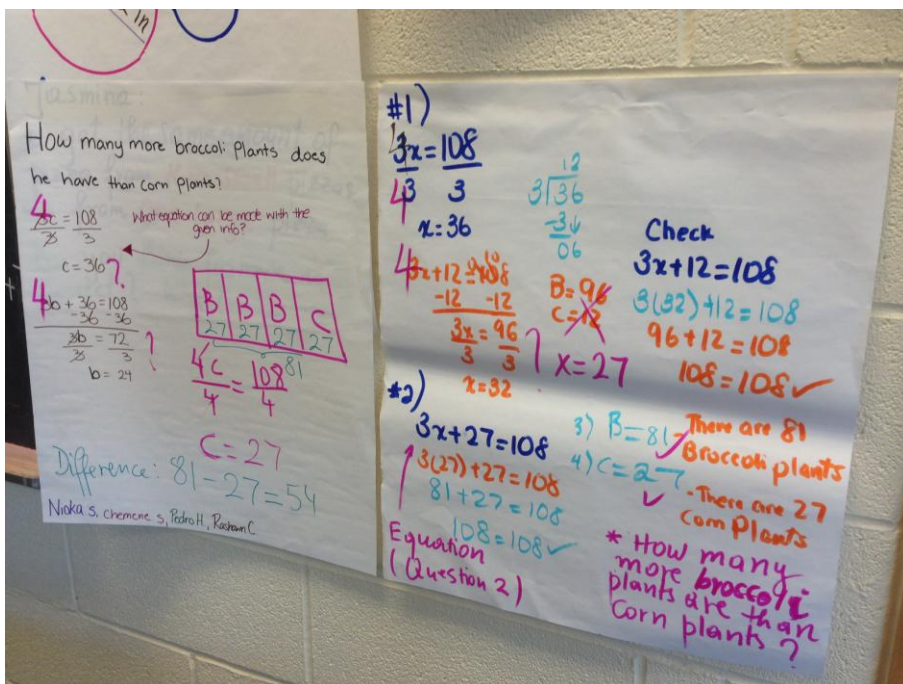 in
Jasmine
How many more broccoli plants does
he have than corn plants?
4
3c = 108
3 3
What equation can be made with the
given info?
c = 36 ?
4
3b + 36 = 108
-36 -36
3b = 72
3 3
?
b = 24
B B B C
27 27 27 27
81
4c = 108
4 4
C = 27
Difference: 81 - 27 = 54
Nioka S, Chemene S, Pedro H, Rashawn C.
#1)
4
3x = 108
4 3 3
x = 36
12
3 36
-3↓
06
4
3x + 12 = 108
-12 -12
3x = 96
3 3
?
x = 32
B = 96
C = 12
x = 27
Check
3x + 12 = 108
3(32) + 12 = 108
96 + 12 = 108
108 = 108 ✓
#2)
3x + 27 = 108
3(27) + 27 = 108
81 + 27 = 108
108 = 108 ✓
Equation
(Question 2)
3) B = 81 - There are 81
✓ Broccoli plants
4) C = 27
✓ - There are 27
Corn Plants
* How many
more broccoli
plants are than
corn plants?